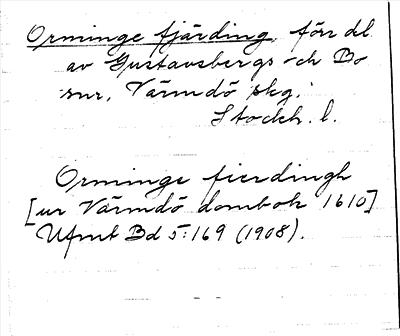 Orminge fjärding, förr del
av Gustavsbergs och Bo
snr, Värmdö skg.
Stockh. l.
Orminge fierdingh
[ur Värmdö dombok 1610]
UFmt Bd 5:169 (1908).